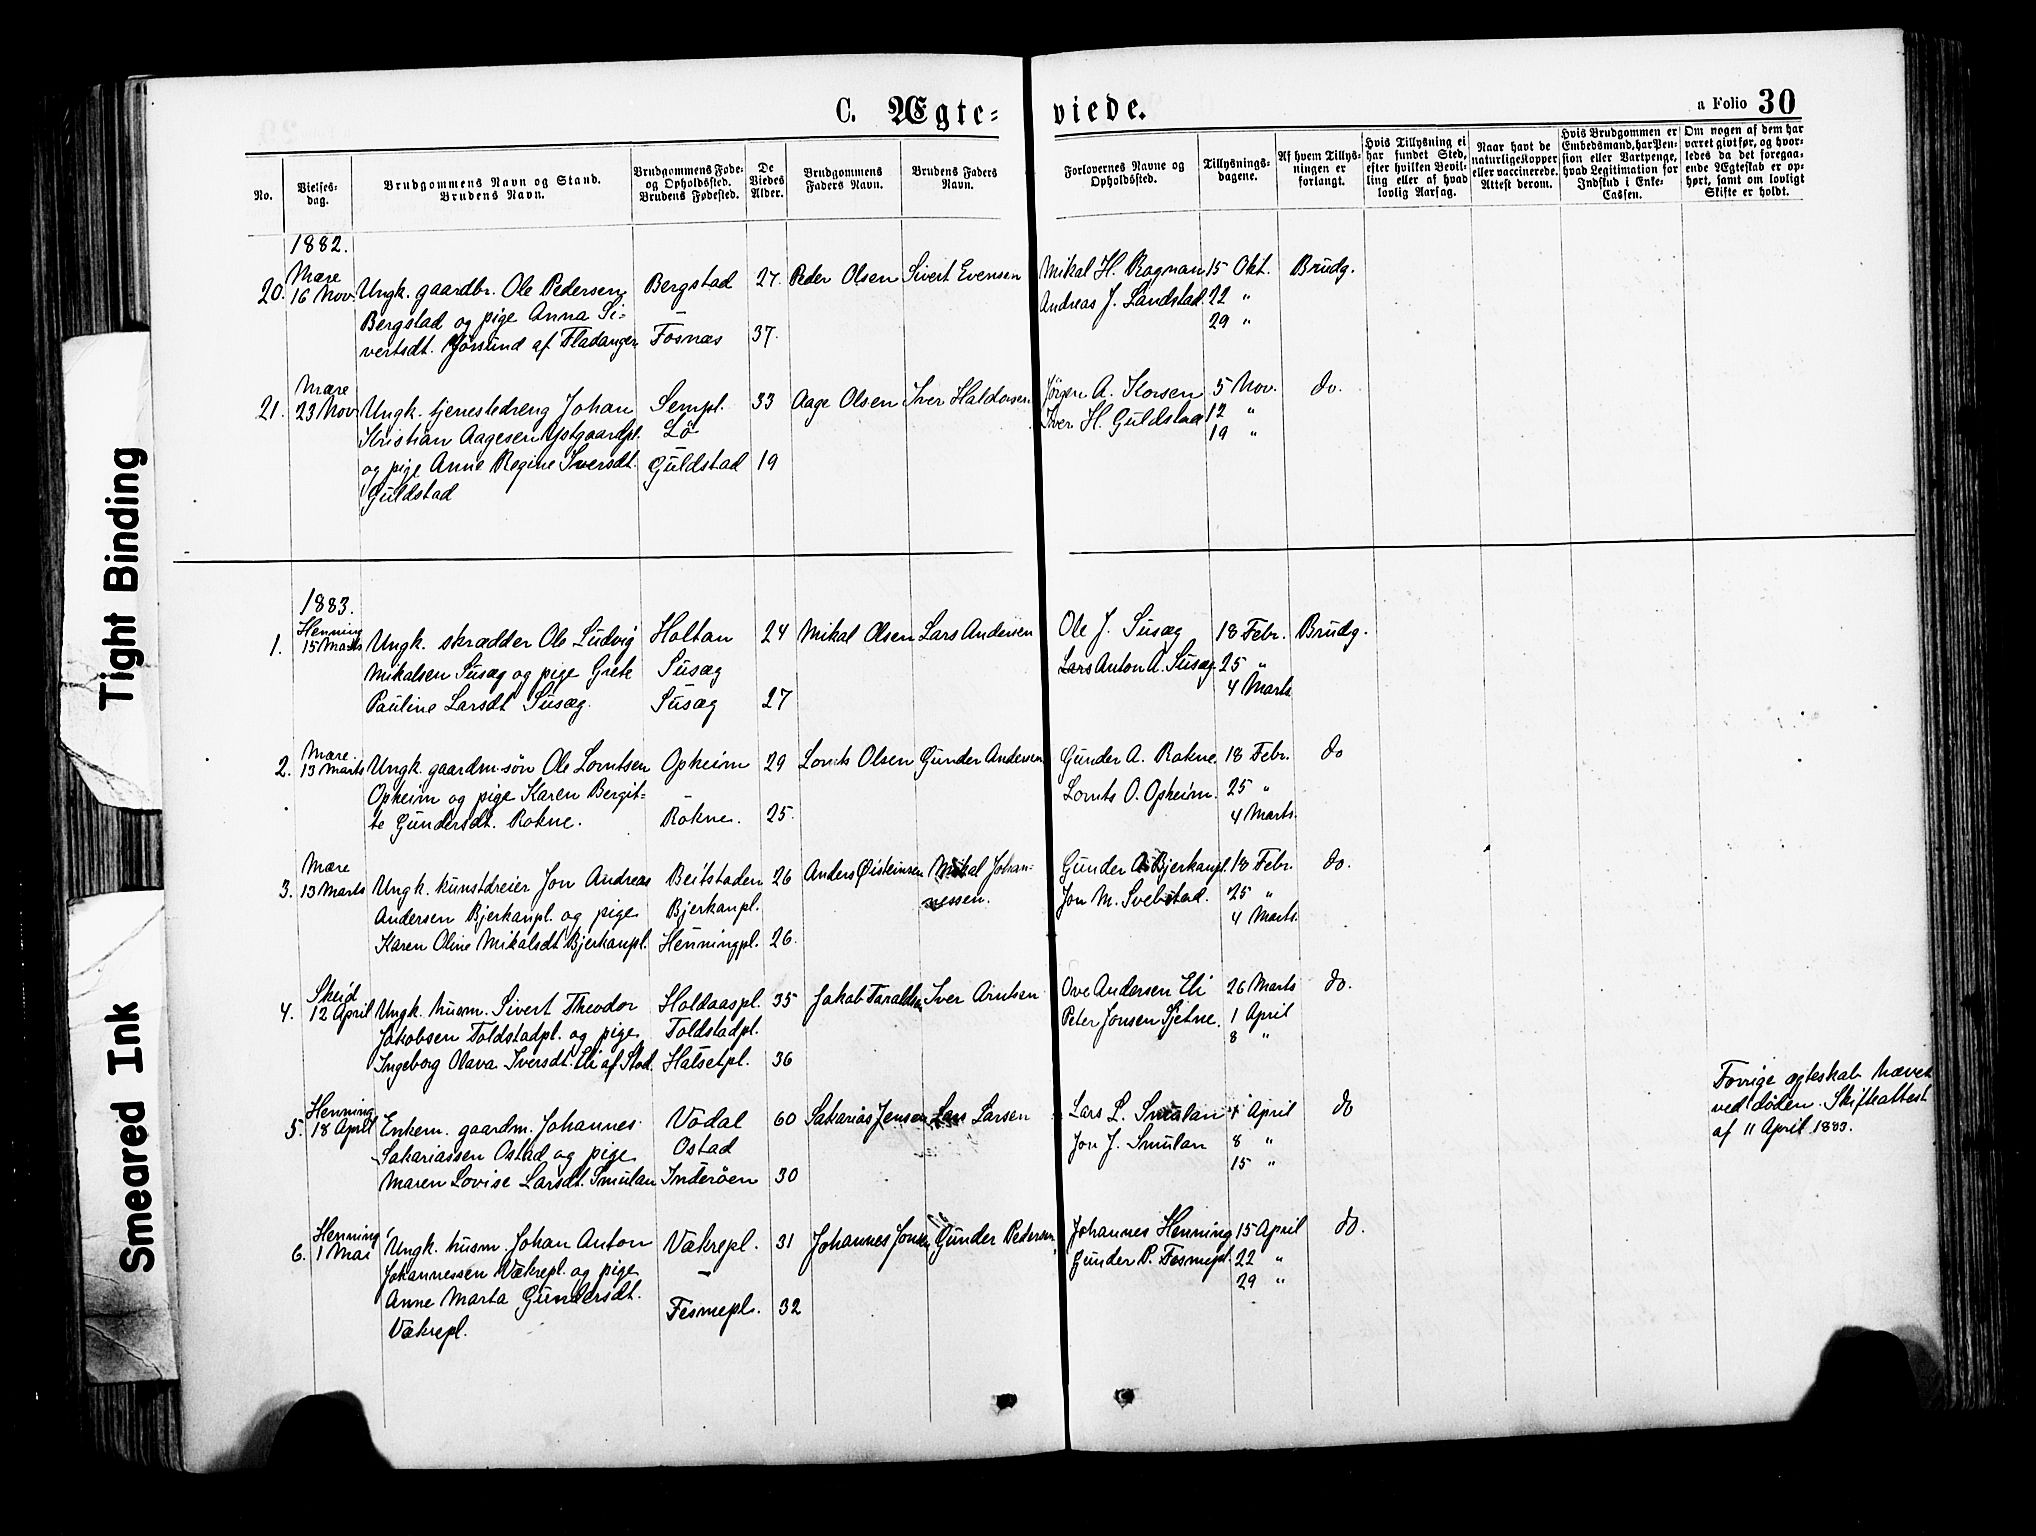 C. Ægte- viede.
a Folio 30
No.
Vielses-
dag.
Brudgommens Navn og Stand.
Brudens Navn.
Brudgommens Føde-
og Opholdssted.
Brudens Fødested.
De
Viedes
Alder.
Brudgommens
Faders Navn.
Brudens Faders
Navn.
Forlovernes Navne og
Opholdssted.
Tillysnings-
dagene.
Af hvem Tillys-
ningen er
forlangt.
Hvis Tillysning ei
har fundet Sted,
efter hvilken Bevil-
ling eller af hvad
lovlig Aarsag.
Naar havt de
naturlige Kopper
eller vaccinerede.
Attest derom.
Hvis Brudgommen er
Embedsmand, har Pen-
sion eller Vartpenge,
hvad Legitimation for
Indskud i Enke-
Cassen.
Om nogen af dem har
været givt før, og hvor-
ledes da det foregaa-
ende Ægteskab er op-
hørt, samt om lovligt
Skifte er holdt.
1882.
20. Mære
16 Nov. Ungk. gaardbr. Ole Pedersen Bergstad 27. Peder Olsen Sivert Evensen Mikal H. Rognan 15 Okt. Brudg.
Andreas J. Landstad. 22 "
Bergstad og pige Anna Si- – 29 "
vertsdt. Jøssund af Fladanger Fosnæs 37.
21. Mære
23 Nov Ungk. tjenestedreng Johan Sempl. 33 Aage Olsen Iver Haldorsen Jørgen A. Korsen 5 Nov. do.
Kristian Aagesen Ystgaardpl. Lö Iver H. Guldstad 12 "
19 "
og pige Anne Regine Iversdt. Guldstad 19
Guldstad
1883.
1. Henning
15 Marts Ungk. skrædder Ole Ludvig Holtan 24 Mikal Olsen Lars Andersen Ole J. Susæg 18 Febr. Brudg.
Mikalsen Susæg og pige Grete Susæg Lars Anton A. Susæg. 25 "
4 Marts
Pauline Larsdt Susæg. Susæg 27
2. Mære
13 Marts Ungk. gaardm.søn Ole Lorntsen Opheim 29 Lornts Olsen Gunder Andersen Gunder A. Rokne 18 Febr. do
Opheim og pige Karen Bergit- – Lornts O. Opheim. 25 "
te Gundersdt. Rokne. Rokne. 25. 4 Marts.
3. Mære
13 Marts Ungk. kunstdreier Jon Andreas Beitstaden 26 Anders Øisteinsen Mikal Johan- Gunder A. Bjerkanpl. 18 Febr. do.
Andersen Bjerkanpl. og pige Bjerkanpl. nessen. Jon M. Svebstad. 25 "
4 Marts.
Karen Oline Mikalsdt Bjerkanpl. Henningpl. 26.
4. Skeid
12 April Ungk. husm. Sivert Theodor Holdaaspl. 35 Jakob Taraldsen Iver Arntsen Ove Andersen Eli 26 Marts do.
Jakobsen Foldstadpl. og pige Foldstadpl. Peter Jonsen Sjetne. 1 April
8 "
Ingeborg Olava Iversdt. Eli af Stod. Halsetpl. 36
5. Henning
18 April Enkem. gaardm. Johannes Vodal 60 Sakarias Jensen Lars Larsen Lars L. Smulan 1 April do
Sakariassen Ostad og pige Ostad Jon J. Smulan 8 "
15 "
Maren Lovise Larsdt. Smulan Inderöen 30
Forrige ægteskab hævet
ved døden. Skifteattest
af 11 April 1883.
6. Henning
1 Mai Ungk. husm. Johan Anton Vækrepl. 31 Johannes Jonsen Gunder Pedersen Johannes Henning 15 April do.
Johannessen Vækrepl. og pige – Gunder P. Fesmepl. 22 "
29 "
Anne Marta Gundersdt. Fesmepl. 32
Vækrepl.
Tight Binding
Smeared Ink